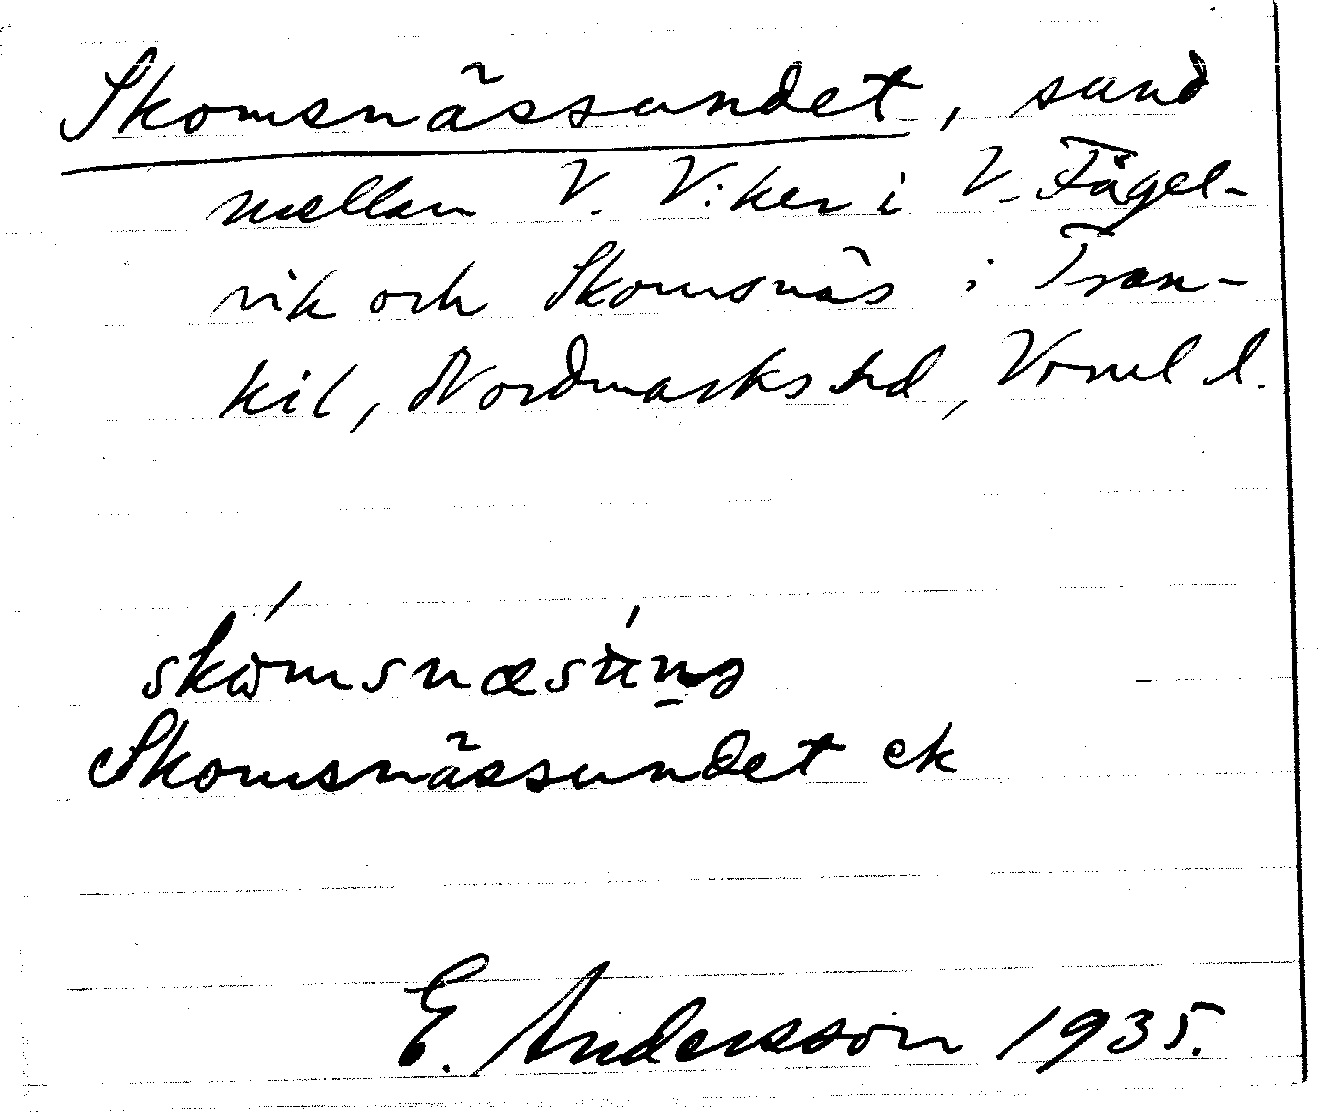 Skomsnässundet, sund
mellan V. Viker i V. Fågel-
vik och Skomsnäs i Tran-
kil, Nordmarks hd, Vrml l.
Skomsnässundet ek
E. Andersson 1935.